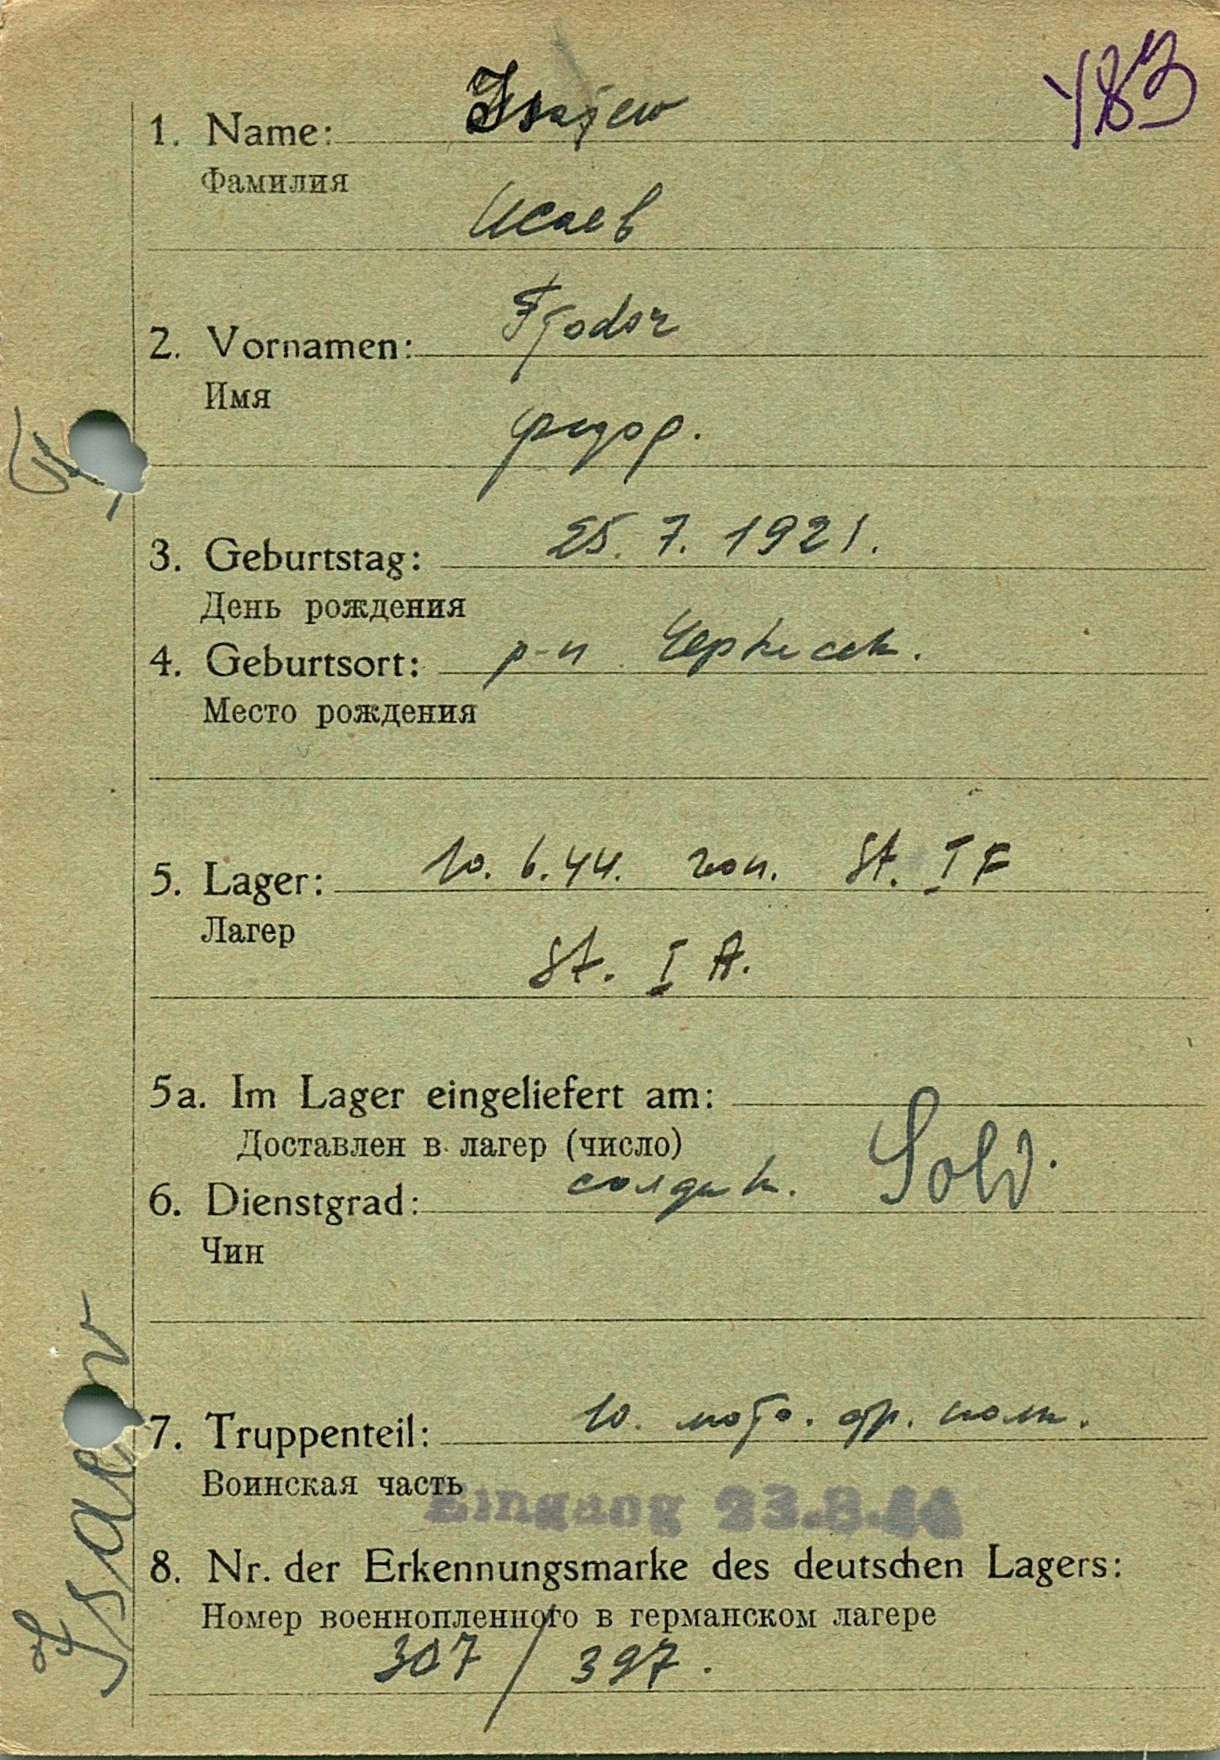 483
1. Name: Isajew
Фамилия
Исаев
2. Vornamen: Fjodor
Имя
Фидор.
3. Geburtstag: 25. 7. 1921.
День рождения
4. Geburtsort: р-н Черкесск.
Место рождения
5. Lager: 10. 6. 44. St. I F
Лагер
St. I A.
5a. Im Lager eingeliefert am:
Доставлен в лагер (число)
6. Dienstgrad: солдат. Sold.
Чин
7. Truppenteil: 10. мото.
Воинская часть
Eingang 23.8.44
8. Nr. der Erkennungsmarke des deutschen Lagers:
Номер военнопленного в германском лагере
307 / 397.
Isaew